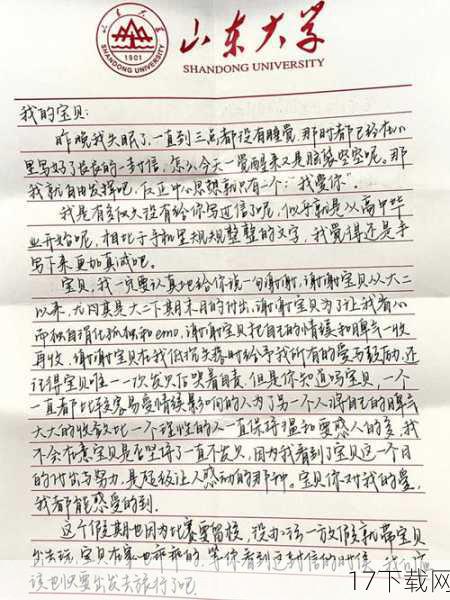 山东大学
SHANDONG UNIVERSITY
1901
SHANDONG UNIVERSITY
我的宝贝:
昨晚我失眠了,一直到三点都没有睡觉,那时都已经在心
里写好了长长的一封信,怎么今天一觉醒来又是脑袋空空呢。那
我就自由发挥吧,反正中心思想就只有一个:“我爱你”。
我是有多久没有给你写过信了呢,似乎就是从高中毕
业开始呢,相比于手机里规规整整的文字,我觉得还是手
写下来更加真诚吧。
宝贝,我一定要认真地给你说一句谢谢,谢谢宝贝从大二
以来,尤其是大二下期末月的付出,谢谢宝贝为了让我省心
而独自消化孤独和emo,谢谢宝贝把自己的情绪和脾气一收
再收,谢谢宝贝在我低谷失落时给予我所有的爱与鼓励,还
记得宝贝唯一一次发火后哭着自责,但是你知道吗宝贝,一个
一直都比较容易受情绪影响的人为了另一个人将自己的脾气
大大的收敛比一个理性的人一直保持温和要感人的多,我
不会在意宝贝是否坚持了一直不发火,因为我看到了宝贝这一个月
的付出与努力,是超级让人感动的那种。宝贝你对我的爱,
我都能感受的到。
这个假期也因为比赛要留校,没办法一放假就带宝贝
出去玩,宝贝在家也乖乖的,等你看到这封信的时候,我们应
该也快要出发去旅行了吧。
17下载网